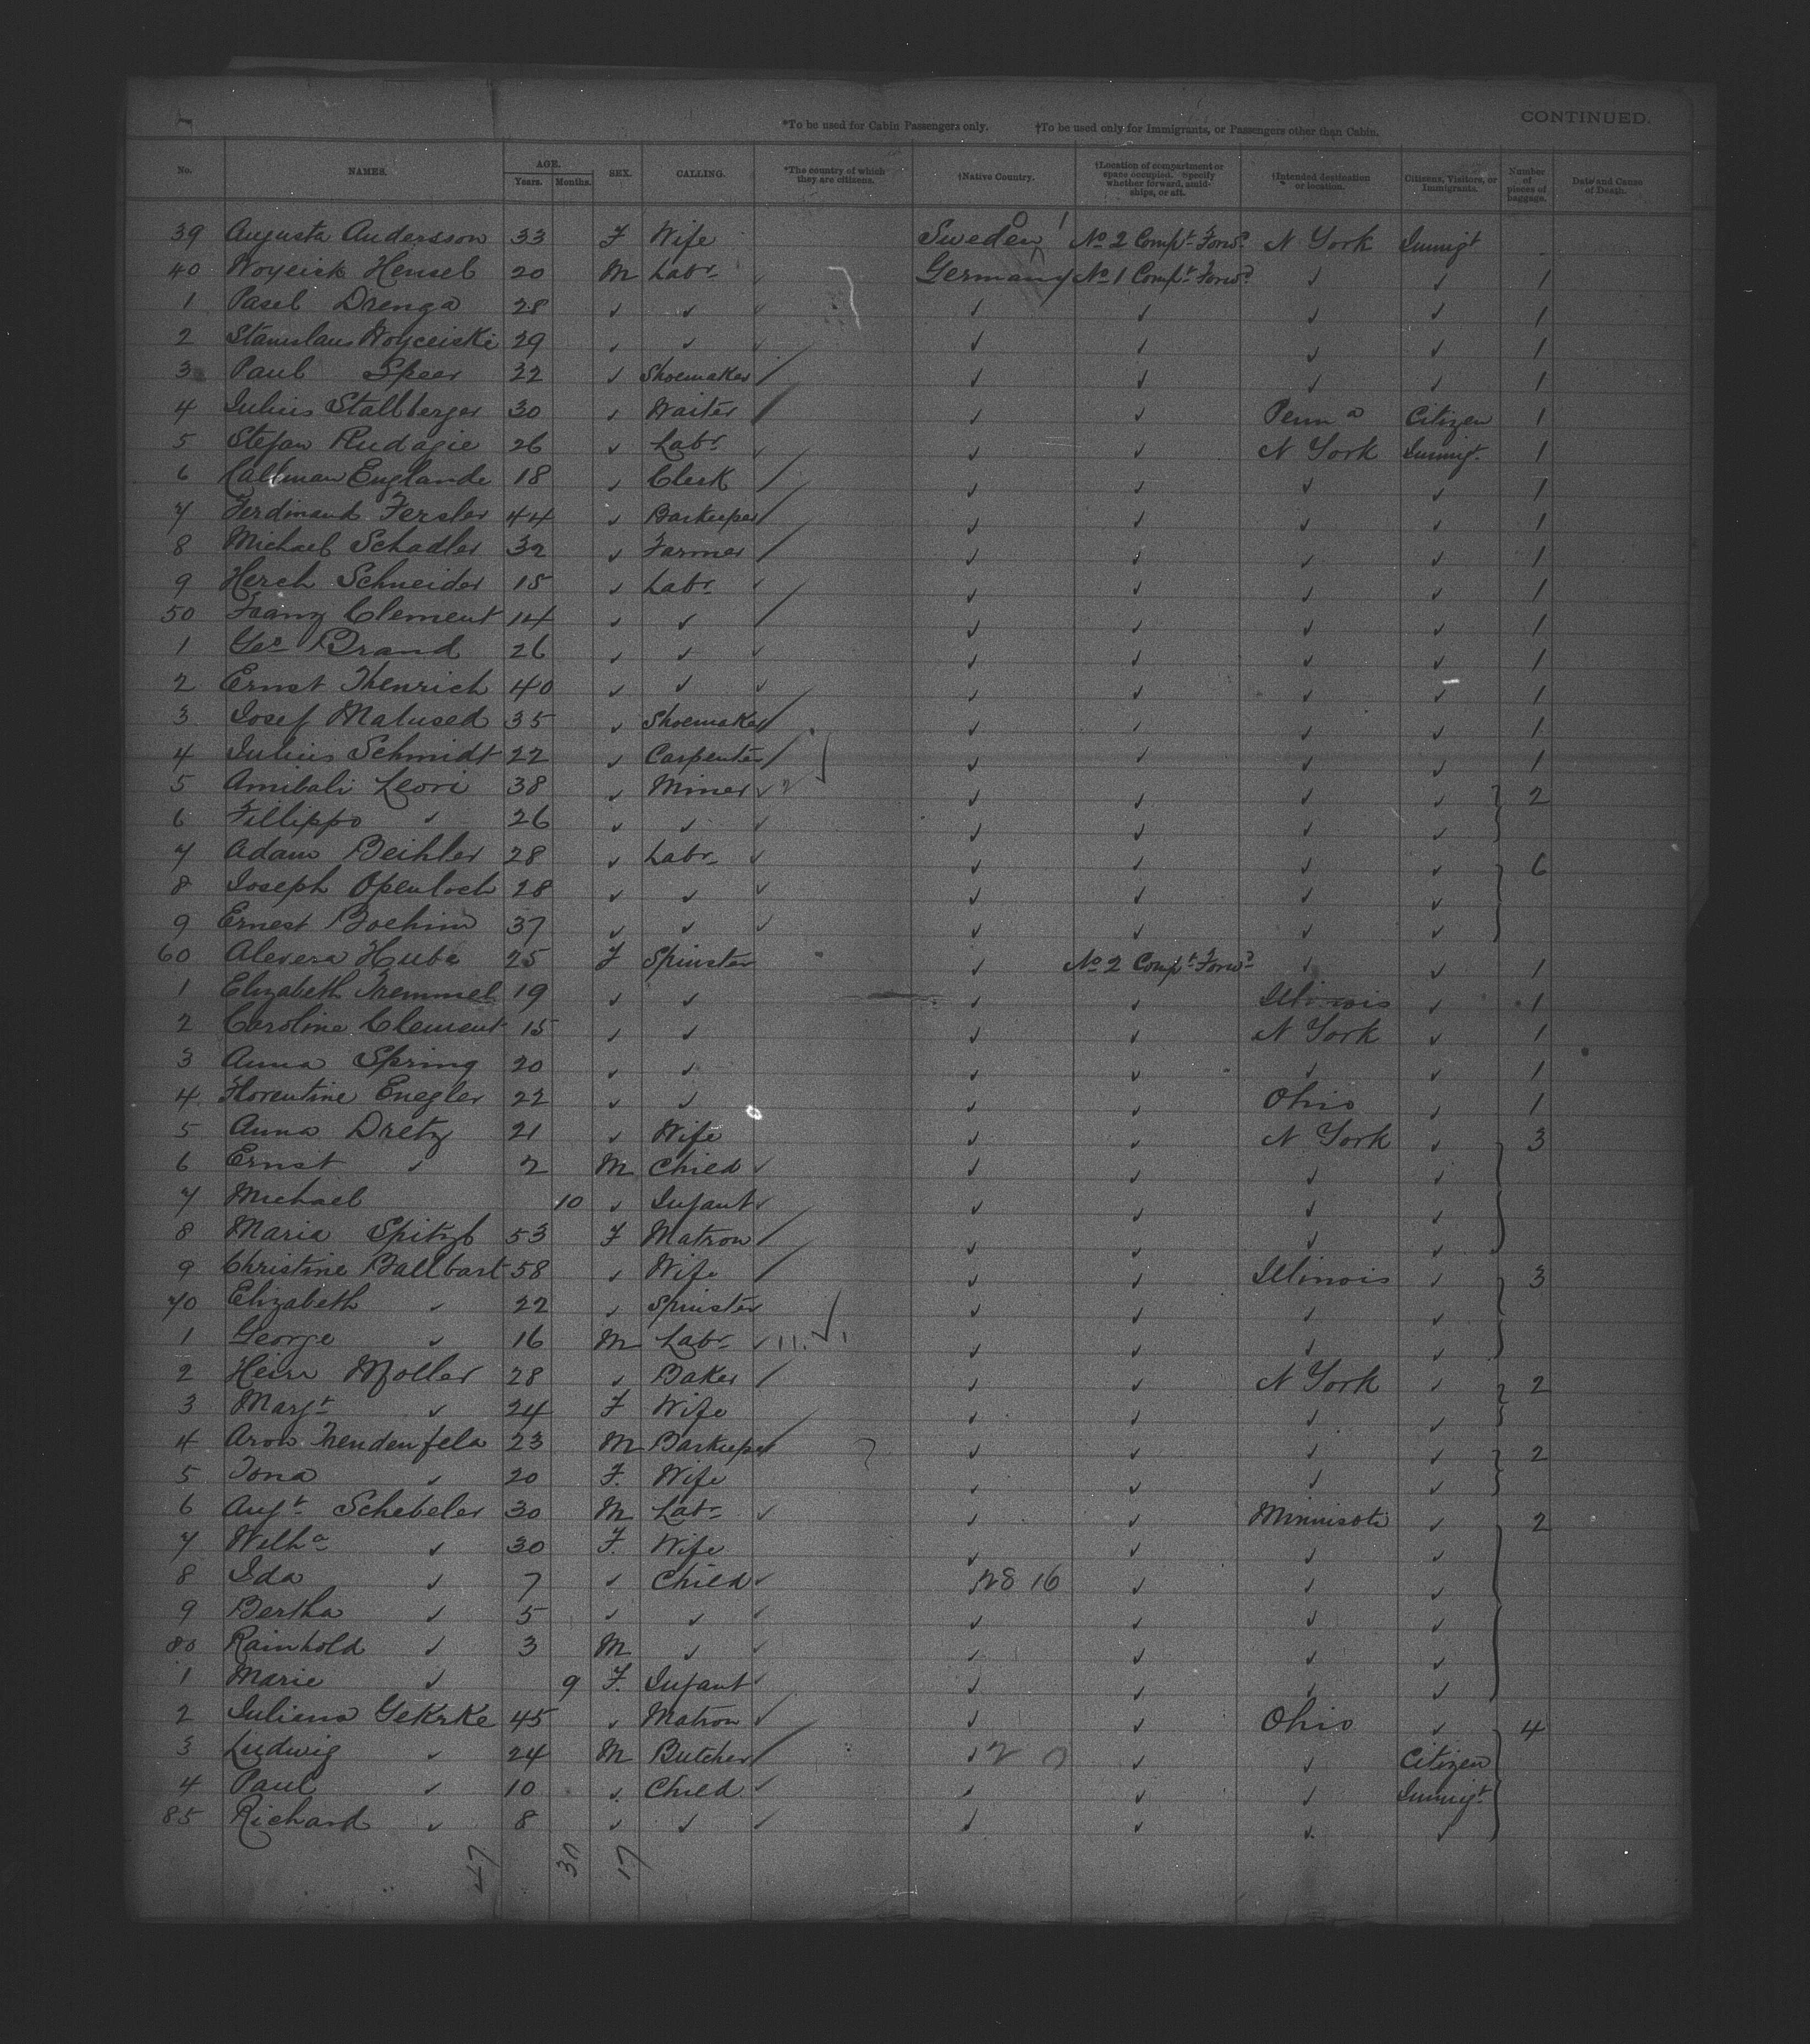 CONTINUED.
*To be used for Cabin Passengers only. †To be used only for Immigrants, or Passengers other than Cabin.
No. NAMES. AGE. Years. Months. SEX. CALLING. *The country of which they are citizens. †Native Country. †Location of compartment or space occupied. Specify whether forward, amidships, or aft. †Intended destination or location. Citizens, Visitors, or Immigrants. Number of pieces of baggage. Date and Cause of Death.
39 Augusta Andersson 33 F Wife Sweden No 2 Compt Forwd N York Immigt
40 Woyciek Hensel 20 M Labr ✓ Germany No 1 Compt Forwd ✓ ✓ 1
1 Pasel Drenga 28 ✓ ✓ ✓ ✓ ✓ ✓ ✓ 1
2 Stanislaus Woyceiski 29 ✓ ✓ ✓ ✓ ✓ ✓ ✓ 1
3 Paul Speer 22 ✓ Shoemaker / ✓ ✓ ✓ ✓ 1
4 Julius Stallberger 30 ✓ Waiter / ✓ ✓ Penna Citizen 1
5 Stefan Rudagie 26 ✓ Labr ✓ ✓ ✓ N York Immigt 1
6 Callman Englande 18 ✓ Clerk / ✓ ✓ ✓ ✓ 1
7 Ferdinand Fersler 44 ✓ Barkeeper / ✓ ✓ ✓ ✓ 1
8 Michael Schadler 32 ✓ Farmer / ✓ ✓ ✓ ✓ 1
9 Herch Schneider 15 ✓ Labr ✓ ✓ ✓ ✓ ✓ 1
50 Franz Clement 14 ✓ ✓ / ✓ ✓ ✓ ✓ 1
1 Geo Brand 26 ✓ ✓ ✓ ✓ ✓ ✓ ✓ 1
2 Ernst Thenrich 40 ✓ ✓ ✓ ✓ ✓ ✓ ✓ 1
3 Josef Matused 35 ✓ Shoemaker / ✓ ✓ ✓ ✓ 1
4 Julius Schmidt 22 ✓ Carpenter / ✓ ✓ ✓ ✓ 1
5 Amibali Leori 38 ✓ Miner ✓ ✓ ✓ ✓ ✓ 2
6 Fillippo ✓ 26 ✓ ✓ ✓ ✓ ✓ ✓ ✓
7 Adam Beihler 28 ✓ Labr ✓ ✓ ✓ ✓ ✓ 6
8 Joseph Openloch 28 ✓ ✓ ✓ ✓ ✓ ✓ ✓
9 Ernest Boehim 37 ✓ ✓ ✓ ✓ ✓ ✓ ✓
60 Alevera Huba 25 F Spinster ✓ No 2 Compt Forwd ✓ ✓ 1
1 Elizabeth Tremmel 19 ✓ ✓ ✓ ✓ Illinois ✓ 1
2 Caroline Clement 15 ✓ ✓ ✓ ✓ N York ✓ 1
3 Anna Spring 20 ✓ ✓ ✓ ✓ ✓ ✓ 1
4 Florentine Enegler 22 ✓ ✓ ✓ ✓ Ohio ✓ 1
5 Anna Dretz 21 ✓ Wife ✓ ✓ N York ✓ 3
6 Ernst ✓ 2 M Child ✓ ✓ ✓ ✓ ✓
7 Michael 10 ✓ Infant ✓ ✓ ✓ ✓ ✓
8 Maria Spitzb 53 F Matron / ✓ ✓ ✓ ✓
9 Christine Ballbart 58 ✓ Wife / ✓ ✓ Illinois ✓ 3
70 Elizabeth ✓ 22 ✓ Spinster ✓ ✓ ✓ ✓
1 George ✓ 16 M Labr ✓ 11. ✓ ✓ ✓ ✓
2 Heinr Moller 28 ✓ Baker / ✓ ✓ N York ✓ 2
3 Margt ✓ 24 F Wife ✓ ✓ ✓ ✓
4 Aron Trendenfela 23 M Barkeeper / ✓ ✓ ✓ ✓ 2
5 Tona ✓ 20 F. Wife ✓ ✓ ✓ ✓
6 Augt Schebeler 30 M Labr ✓ ✓ ✓ Minnisota ✓ 2
7 Wilha ✓ 30 F. Wife ✓ ✓ ✓ ✓
8 Ida ✓ 7 ✓ Child ✓ ✓ 28 16 ✓ ✓ ✓
9 Bertha ✓ 5 ✓ ✓ ✓ ✓ ✓ ✓ ✓
80 Rainhold ✓ 3 M ✓ ✓ ✓ ✓ ✓ ✓
1 Marie ✓ 9 F. Infant ✓ ✓ ✓ ✓ ✓
2 Juliana Gekrke 45 ✓ Matron ✓ ✓ ✓ Ohio ✓ 4
3 Ludwig ✓ 24 M Butcher / ✓ 2 ✓ ✓ Citizen
4 Paul ✓ 10 ✓ Child ✓ ✓ ✓ ✓ Immigt
85 Richard ✓ 8 ✓ ✓ ✓ ✓ ✓ ✓ ✓
47 30 17